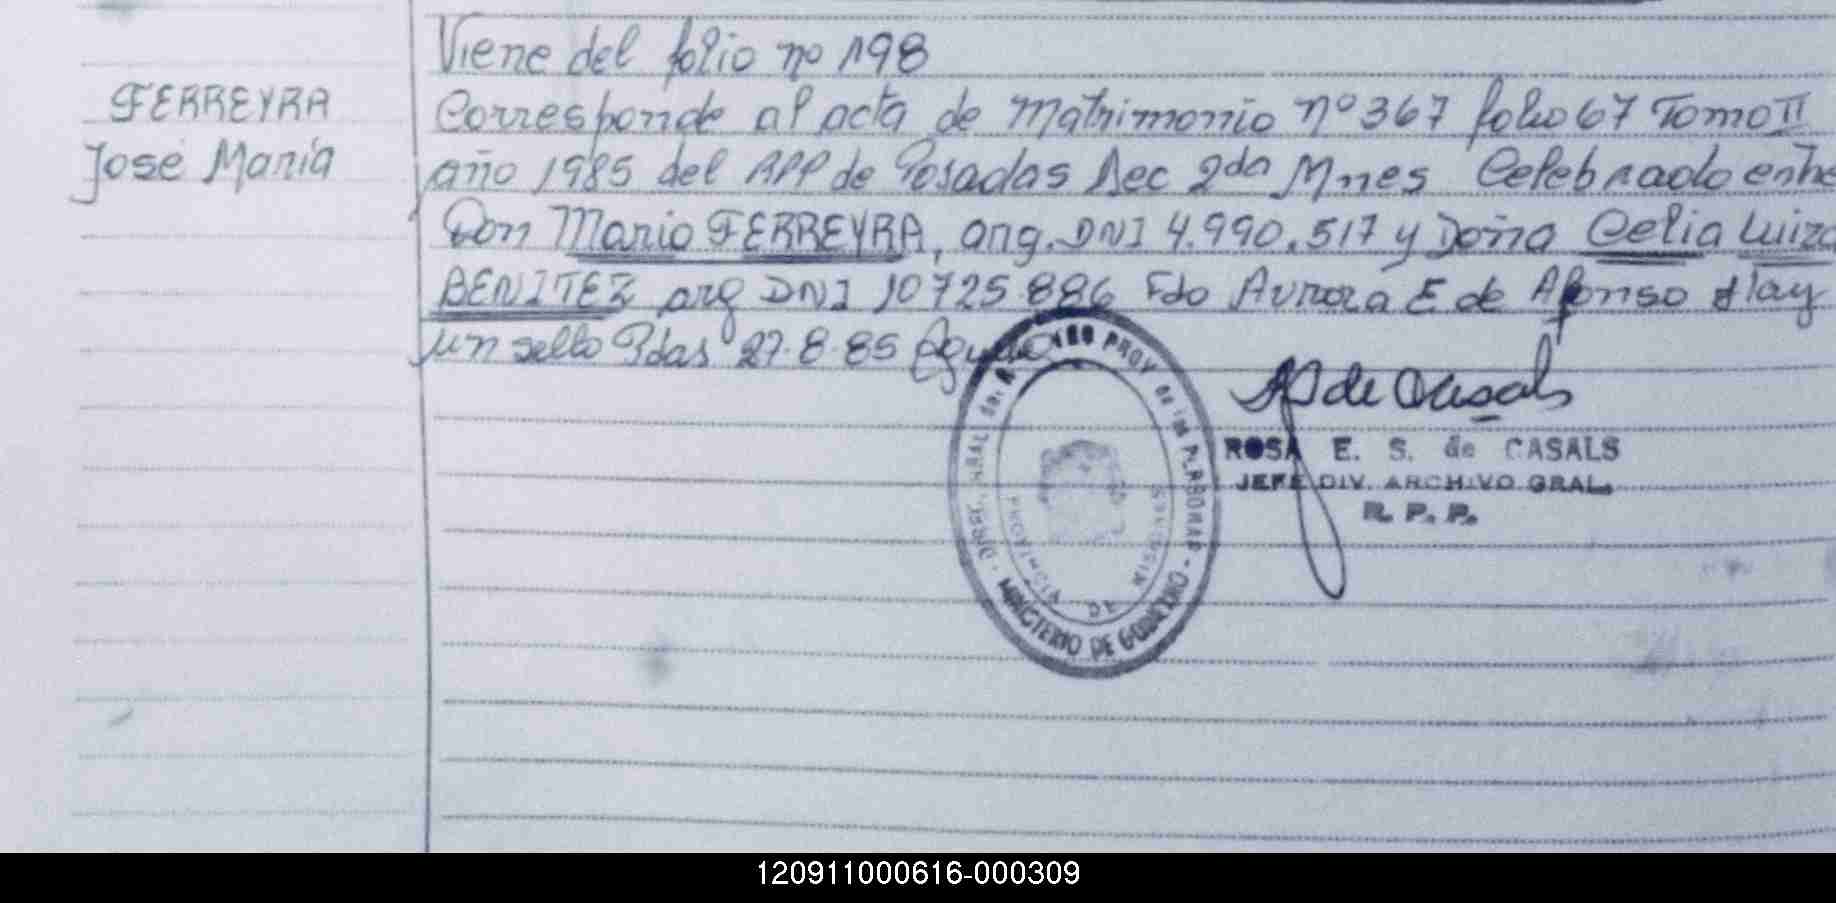 Viene del folio nº 198
FERREYRA
José María
Corresponde al acta de Matrimonio nº 367 folio 67 Tomo II
año 1985 del RPP de Posadas Sec 2da Mnes Celebrado entre
Don Mario FERREYRA, arg. DNI 4.990.517 y Doña Celia Luiza
BENITEZ arg DNI 10725.886 Fdo Aurora E de Afonso Hay
un sello Pdas 27-8-85
PROV de las PERSONAS - MINISTERIO DE GOBIERNO -
PROVINCIA DE MISIONES
ROSA E. S. de CASALS
JEFE DIV. ARCHIVO GRAL.
R. P. P.
120911000616-000309